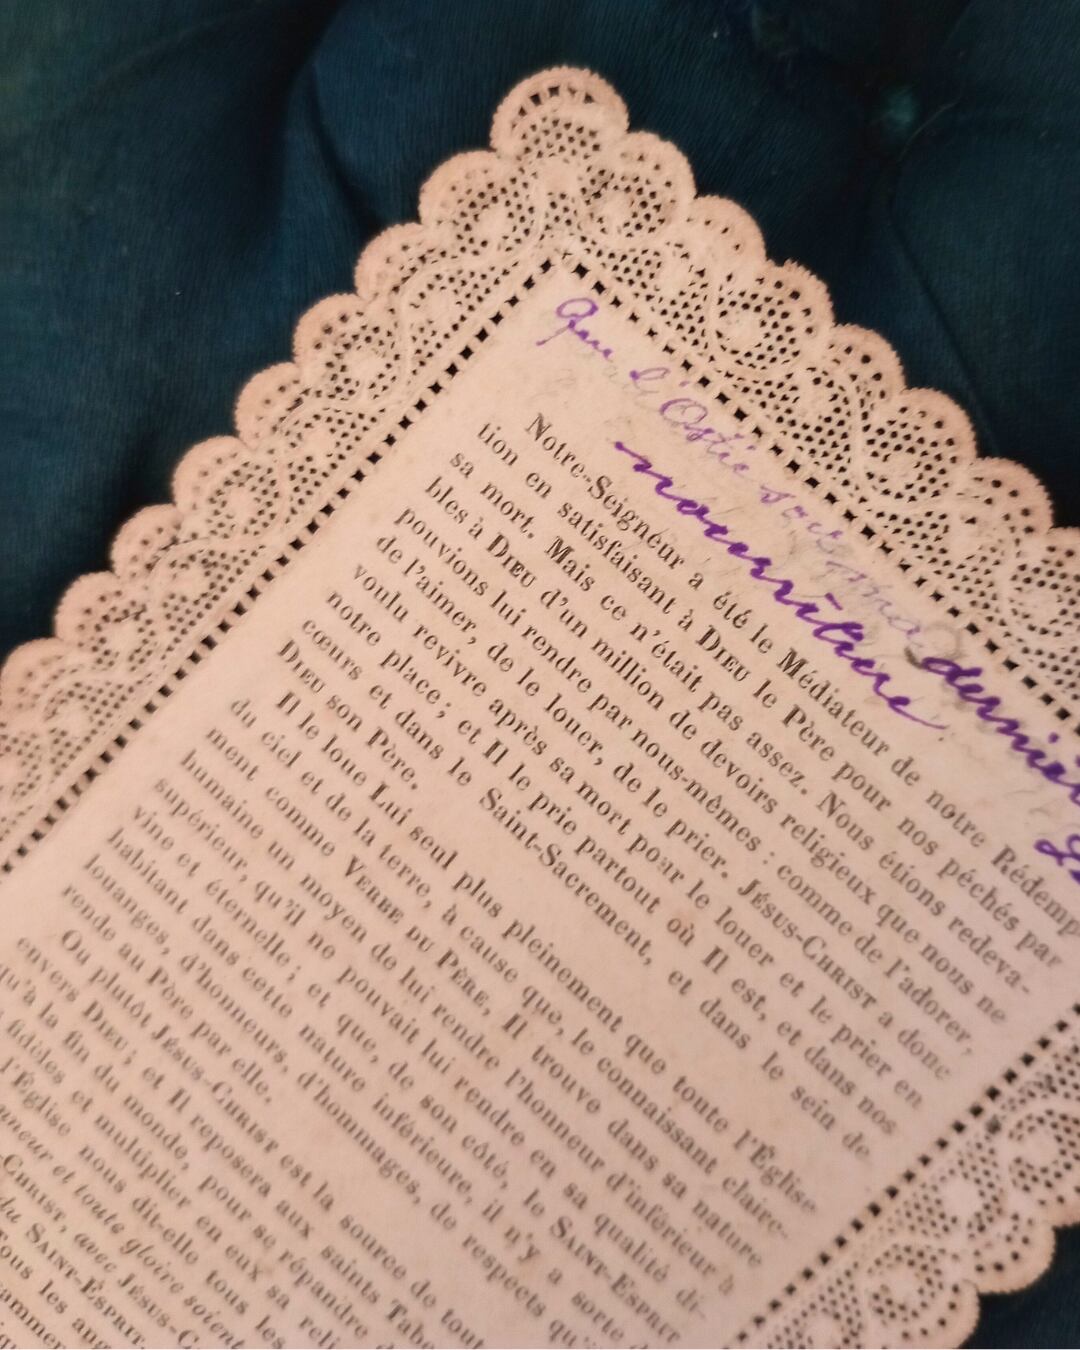 Que l'Ostie sois ma dernière
nourritture.
Notre-Seigneur a été le Médiateur de notre Rédemp-
tion en satisfaisant à DIEU le Père pour nos péchés par
sa mort. Mais ce n'était pas assez. Nous étions redeva-
bles à DIEU d'un million de devoirs religieux que nous ne
pouvions lui rendre par nous-mêmes : comme de l'adorer,
de l'aimer, de le louer, de le prier. JÉSUS-CHRIST a donc
voulu revivre après sa mort pour le louer et le prier en
notre place ; et Il le prie partout où Il est, et dans nos
cœurs et dans le Saint-Sacrement, et dans le sein de
DIEU son Père.
Il le loue Lui seul plus pleinement que toute l'Église
du ciel et de la terre, à cause que, le connaissant claire-
ment comme VERBE DU PÈRE, Il trouve dans sa nature
humaine un moyen de lui rendre l'honneur d'inférieur à
supérieur, qu'il ne pouvait lui rendre en sa qualité di-
vine et éternelle ; et que, de son côté, le SAINT-ESPRIT
habitant dans cette nature inférieure, il n'y a sorte
louanges, d'honneurs, d'hommages, de respects qu'
rende au Père par elle.
Ou plutôt JÉSUS-CHRIST est la source de tout
envers DIEU ; et Il reposera aux saints Tabe
qu'à la fin du monde, pour se répandre
fidèles et multiplier en eux sa reli
l'Église nous dit-elle tous les
gneur et toute gloire soient
-CHRIST, avec JÉSUS-C
du SAINT-ESPRIT.
Tous les ang